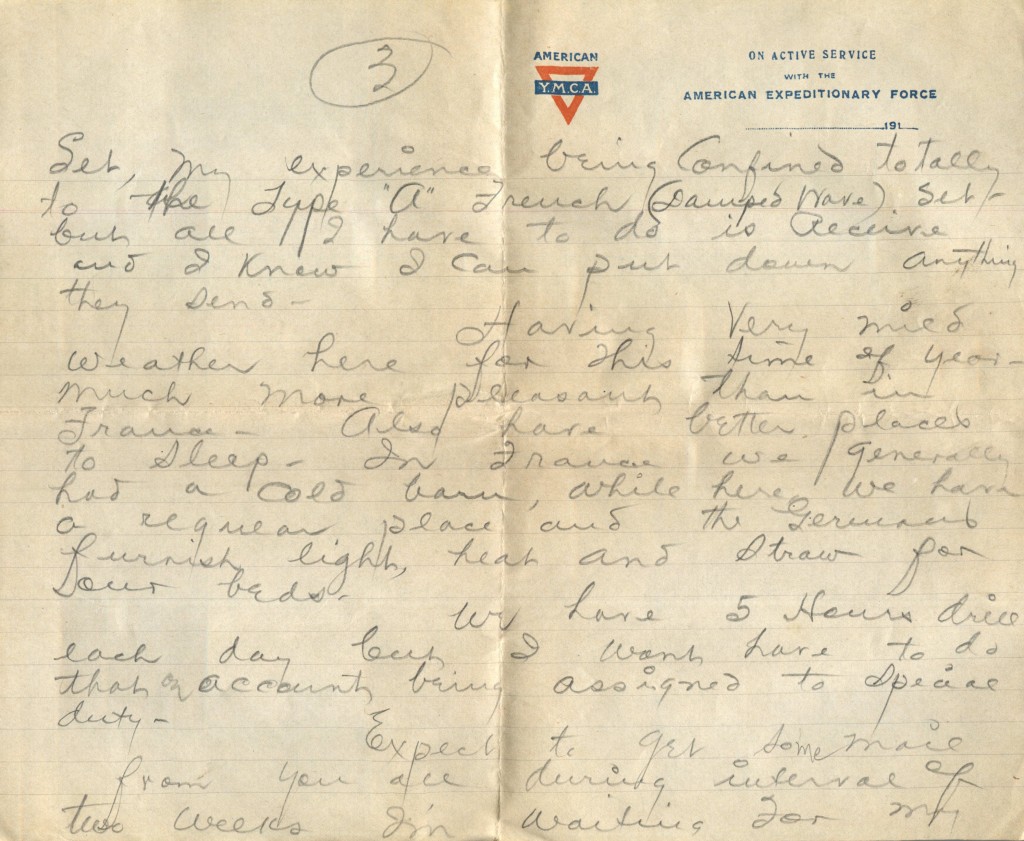 3
AMERICAN
Y.M.C.A.
ON ACTIVE SERVICE
WITH THE
AMERICAN EXPEDITIONARY FORCE
191
Set, my experience being Confined totally
to the Type "A" French (Damped Wave) Set-
but all I have to do is Receive
and I Know I can put down anything
they send-
Having Very mild
weather here for this time of year-
much more pleasant than in
France- Also have better places
to Sleep- In France we generally
had a cold barn, while here we have
a regular place and the Germans
furnish light, heat and Straw for
our beds-
We have 5 Hours drill
each day but I wont have to do
that on account being assigned to Special
duty-
Expect to get some mail
from you all during interval of
two weeks I'm waiting for my